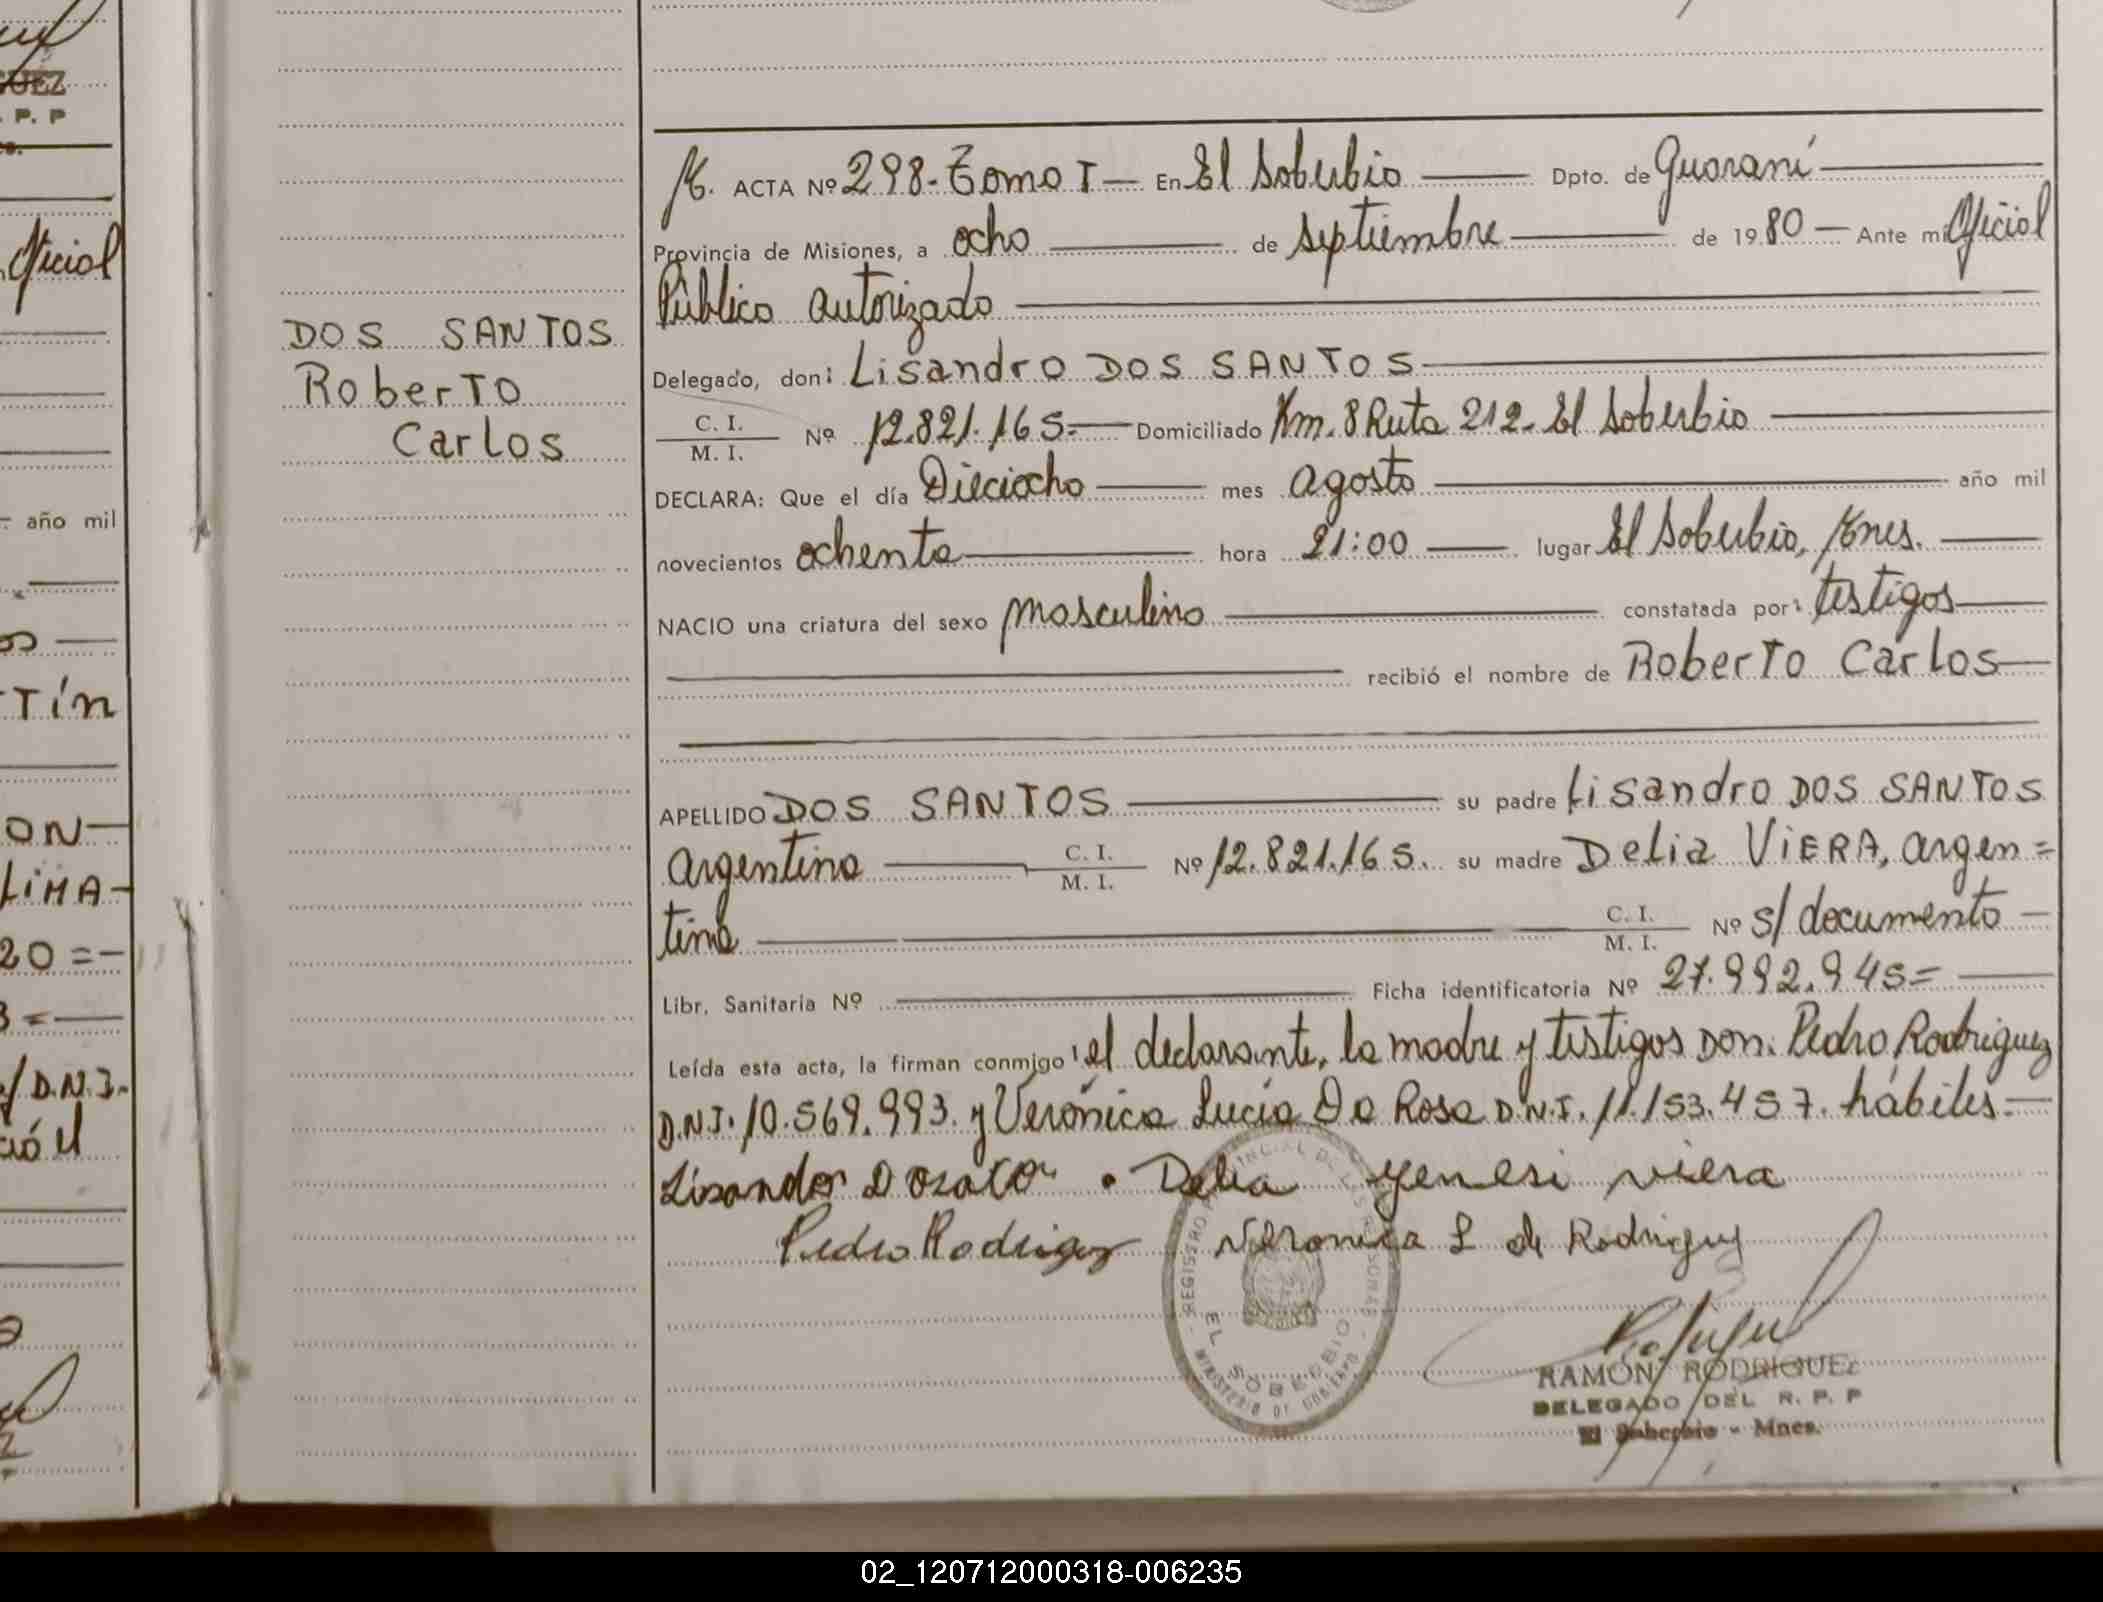 UEZ
. P. P
Oficial
año mil
os
TÍN
ON
LIMA
20 =
3 =
D.N.I.
ió el
DOS SANTOS
Roberto
Carlos
ACTA Nº 298. Tomo I En El Soberbio Dpto. de Guaraní
Provincia de Misiones, a ocho de septiembre de 1980 Ante mi Oficial
Público autorizado
Delegado, don: Lisandro DOS SANTOS
C. I.
M. I. Nº 12.821.165.= Domiciliado Km. 8 Ruta 212- El Soberbio
DECLARA: Que el día Dieciocho mes agosto año mil
novecientos ochenta hora 21:00 lugar El Soberbio, Mnes.
NACIO una criatura del sexo masculino constatada por: testigos
recibió el nombre de Roberto Carlos
APELLIDO DOS SANTOS su padre Lisandro DOS SANTOS
argentino C. I. M. I. Nº 12.821.165. su madre Delia VIERA, argen=
tina C. I. M. I. Nº s/ documento
Libr. Sanitaria Nº Ficha identificatoria Nº 27.992.945=
Leída esta acta, la firman conmigo el declarante, la madre y testigos Don. Pedro Rodriguez
D.N.I. 10.569.993. y Verónica Lucía Da Rosa D.N.I. 11.153.457. hábiles.
Lisandro
Delia yenesi viera
Pedro Rodriguez Veronica L de Rodriguez
REGISTRO PROVINCIAL DE LAS PERSONAS
EL SOBERBIO
MINISTERIO DE GOBIERNO
RAMON RODRIGUEZ
DELEGADO DEL R. P. P
El Soberbio - Mnes.
02_120712000318-006235